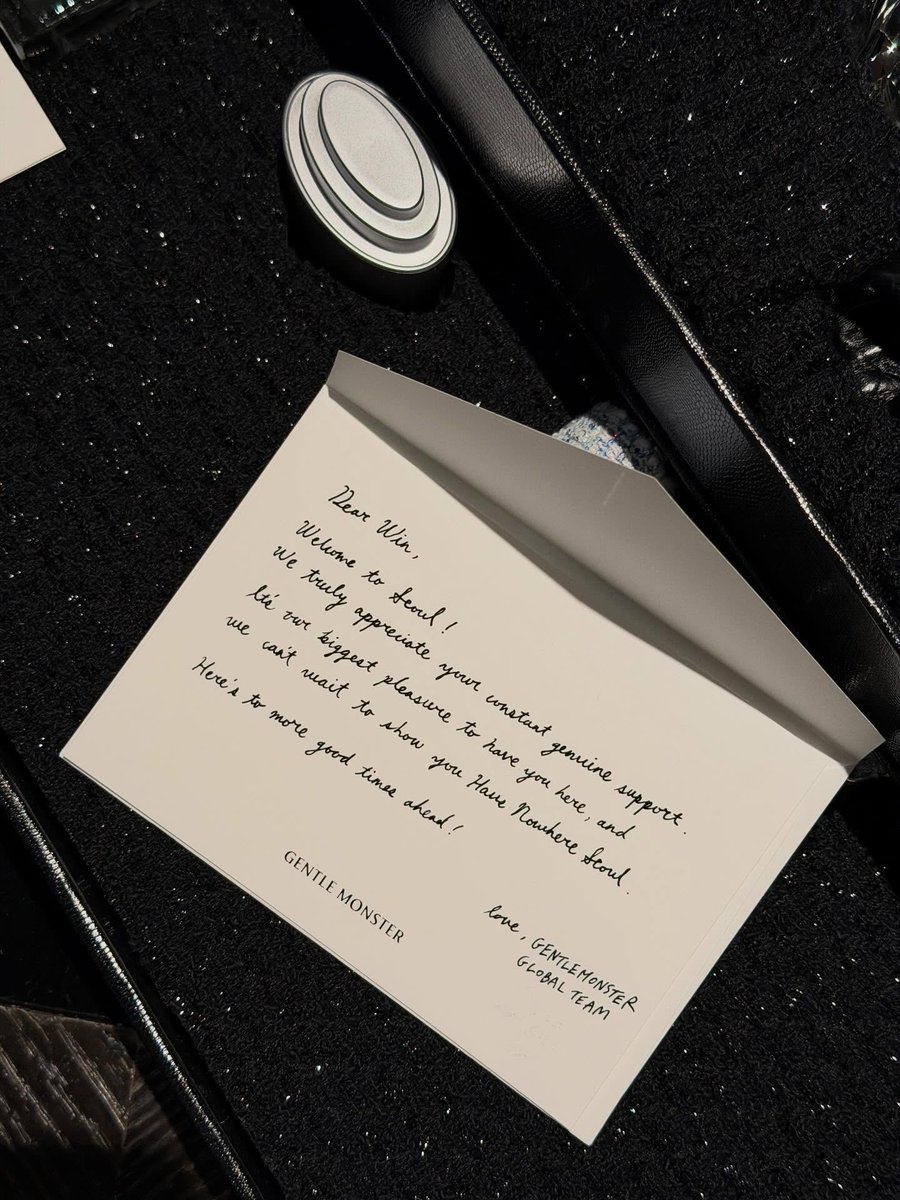 Dear Win,
Welcome to Seoul!
We truly appreciate your constant genuine support.
It's our biggest pleasure to have you here, and
we can't wait to show you Haus Nowhere Seoul.
Here's to more good times ahead!
love, GENTLEMONSTER
GLOBAL TEAM
GENTLE MONSTER